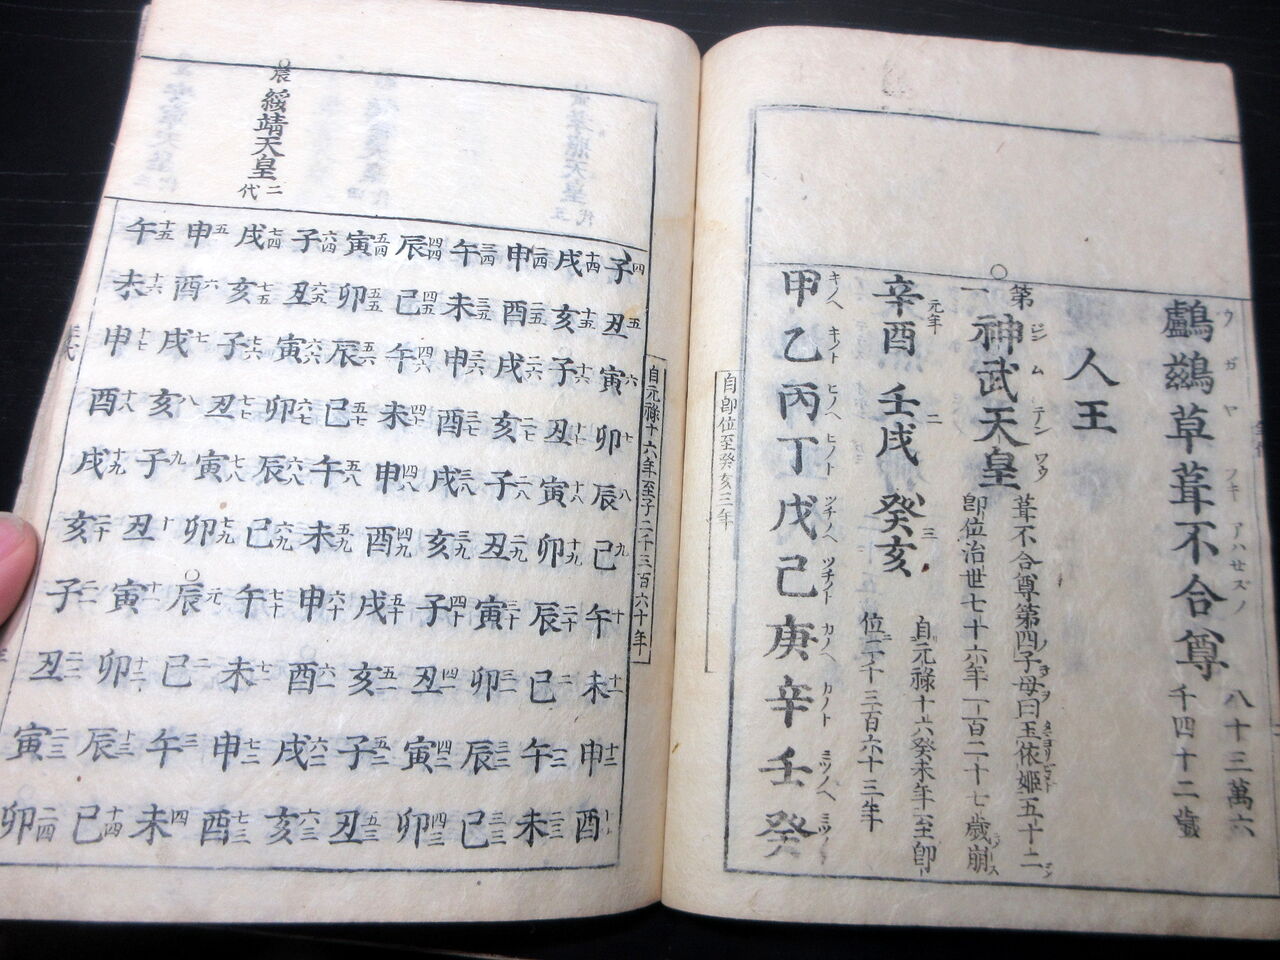 鸕鷀草葺不合尊 八十三萬六
千四十二歳
ウガヤフキアハセズノ
人王
○第一神武天皇 葺不合尊第四子母曰玉依姫五十二
即位治世七十六年一百二十七歳崩
ジンムテンワウ
辛酉元年 壬戌二 癸亥三 自元禄十六癸未年至即
位二千三百六十三年
甲乙丙丁戊己庚辛壬癸
キノヘ キノト ヒノヘ ヒノト ツチノヘ ツチノト カノヘ カノト ミヅノヘ ミヅノ
自即位至癸亥三年
自元禄十六年至子二千三百六十年
子四 丑五 寅六 卯七 辰八 巳九 午十 未十一 申十二 酉十三
戌十四 亥十五 子十六 丑十七 寅十八 卯十九 辰二十 巳二一 午二二 未二三
申二四 酉二五 戌二六 亥二七 子二八 丑二九 寅三十 卯三一 辰三二 巳三三
午三四 未三五 申三六 酉三七 戌三八 亥三九 子四十 丑四一 寅四二 卯四三
辰四四 巳四五 午四六 未四七 申四八 酉四九 戌五十 亥五一 子五二 丑五三
寅五四 卯五五 辰五六 巳五七 午五八 未五九 申六十 酉六一 戌六二 亥六三
子六四 丑六五 寅六六 卯六七 辰六八 巳六九 午七十 未七一 申七二 酉七三
○辰綏靖天皇二代
戌七四 亥七五 子七六 丑七七 寅七八 卯七九 ○辰元 巳二 午三 未四
申五 酉六 戌七 亥八 子九 丑十 寅十一 卯十二 辰十三 巳十四
午十五 未十六 申十七 酉十八 戌十九 亥二十 子二一 丑二二 寅二三 卯二四